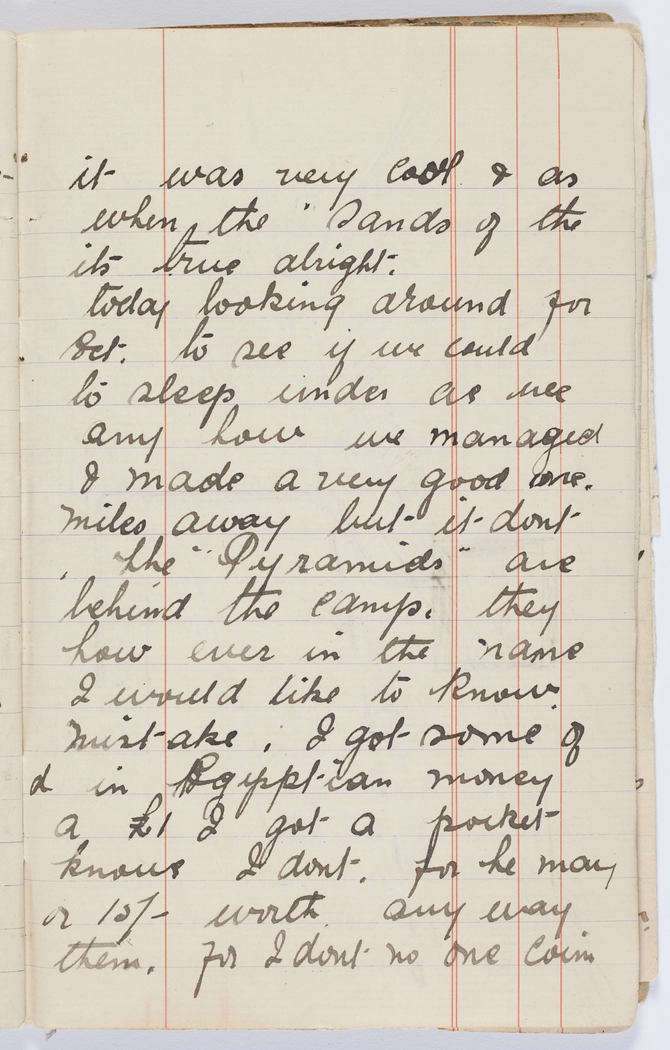 it was very cool & as
when the "Sands of the
its true alright.
today looking around for
Oct. to see if we could
to sleep under as we
any how we managed
I made a very good one.
miles away but it dont
. the "Pyramids" are
behind the camp. they
how ever in the name
I would like to know
mistake. I got some of
d in Egipptian money
a £1 I got a pocket
knows I dont. for he may
or 15/- worth any way
them. for I dont no one coin